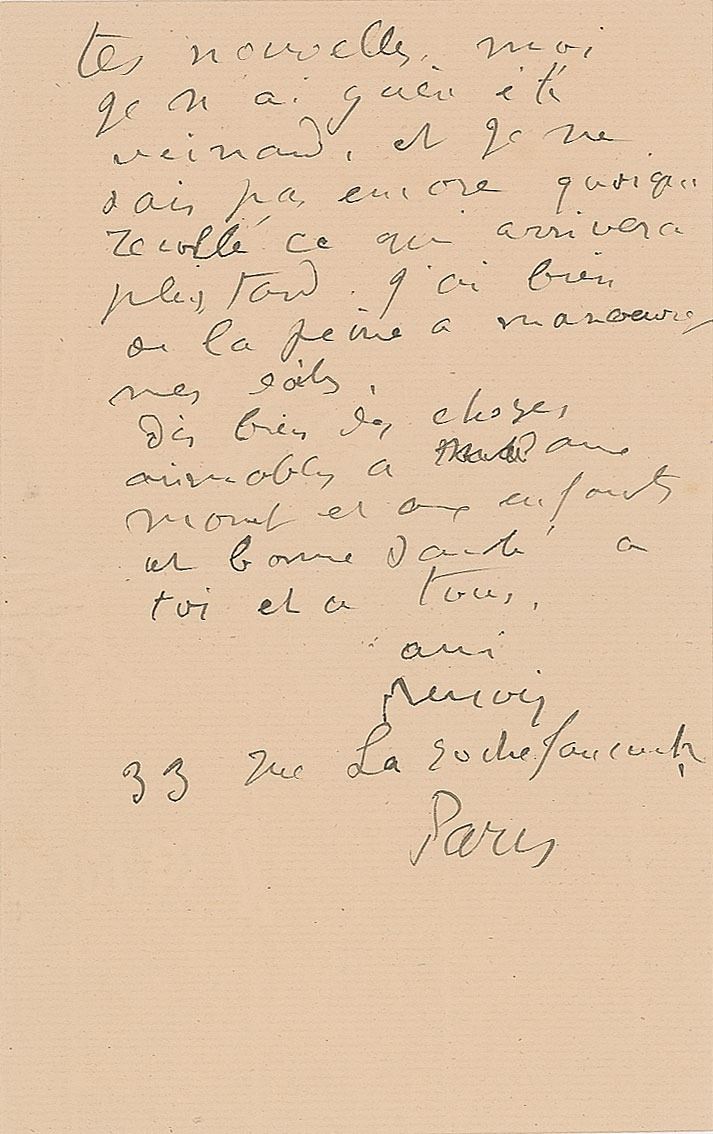 tes nouvelles. moi
je n'ai guère été
veinard, et je ne
sais pas encore quoique
recollé ce qui arrivera
plus tard. j'ai bien
de la peine a manoeuvrer
mes
Dis bien des choses
aimables a Madame
monet et aux enfants
et bonne santé a
toi et a tous,
ami
Renoir
33 rue La rochefoucault,
Paris